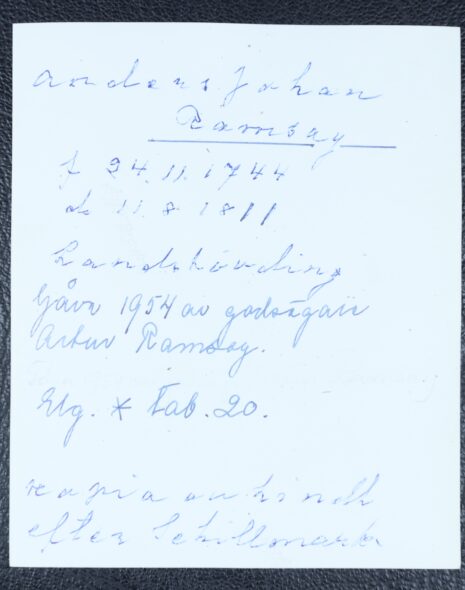 Anders Johan
Ramsay
f 24.11.1744
d. 11.8 1811
Landshövding
Gåva 1954 av godsägare
Artur Ramsay.
Elg. * Tab. 20.
kopia av
efter Schillmark